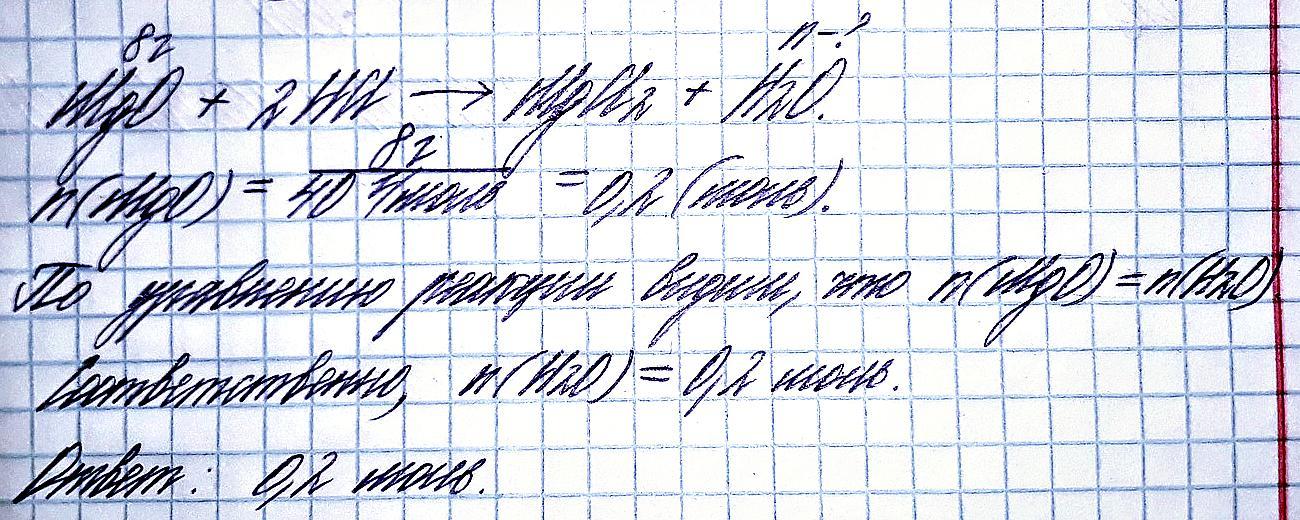 8г n-?
MgO + 2HCl → MgCl2 + H2O.
n(MgO) = 8г / 40 г/моль = 0,2 (моль).
По уравнению реакции видим, что n(MgO) = n(H2O)
Соответственно, n(H2O) = 0,2 моль.
Ответ: 0,2 моль.